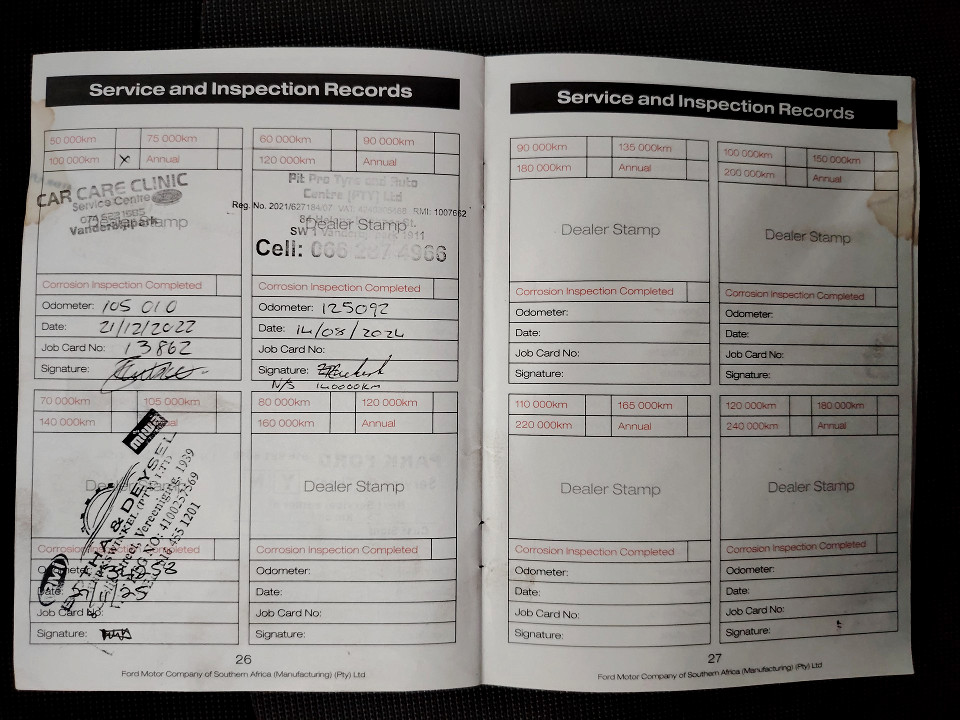 Service and Inspection Records
50 000km 75 000km
100 000km X Annual
CAR CARE CLINIC
Service Centre
Vanderbijlpark
Dealer Stamp
Corrosion Inspection Completed
Odometer: 105 010
Date: 21/12/2022
Job Card No: 13862
Signature:
60 000km 90 000km
120 000km Annual
Pit Pro Tyre and Auto
Centre (PTY) Ltd
Reg. No. 2021/627184/07 RMI: 1007662
Dealer Stamp
Cell: 066 287 4966
Corrosion Inspection Completed
Odometer: 125092
Date: 14/08/2024
Job Card No:
Signature:
N/S 140000km
70 000km 105 000km
140 000km Annual
& DEYSEL
Vereeniging, 1939
455 1201
Corrosion Inspection Completed
Odometer:
Date:
Job Card No:
Signature:
80 000km 120 000km
160 000km Annual
Dealer Stamp
Corrosion Inspection Completed
Odometer:
Date:
Job Card No:
Signature:
26
Ford Motor Company of Southern Africa (Manufacturing) (Pty) Ltd
Service and Inspection Records
90 000km 135 000km
180 000km Annual
Dealer Stamp
Corrosion Inspection Completed
Odometer:
Date:
Job Card No:
Signature:
100 000km 150 000km
200 000km Annual
Dealer Stamp
Corrosion Inspection Completed
Odometer:
Date:
Job Card No:
Signature:
110 000km 165 000km
220 000km Annual
Dealer Stamp
Corrosion Inspection Completed
Odometer:
Date:
Job Card No:
Signature:
120 000km 180 000km
240 000km Annual
Dealer Stamp
Corrosion Inspection Completed
Odometer:
Date:
Job Card No:
Signature:
27
Ford Motor Company of Southern Africa (Manufacturing) (Pty) Ltd